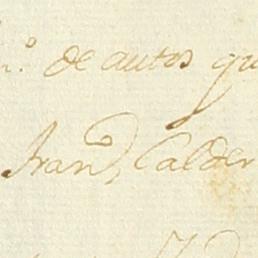 n.º de autos qu
Fran.co Calder